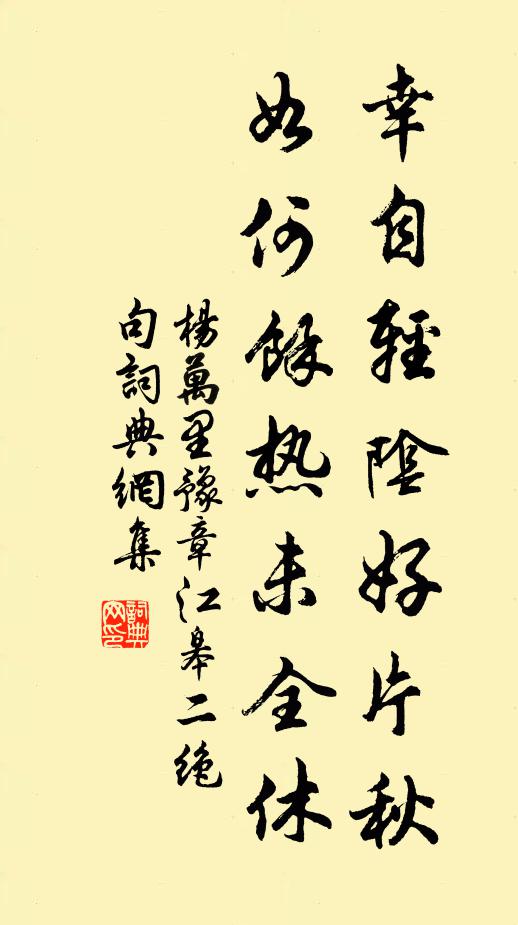 幸自輕陰好片秋
如何餘热未全休
楊萬里豫章江皋二绝
句詞典網集
詞典网印